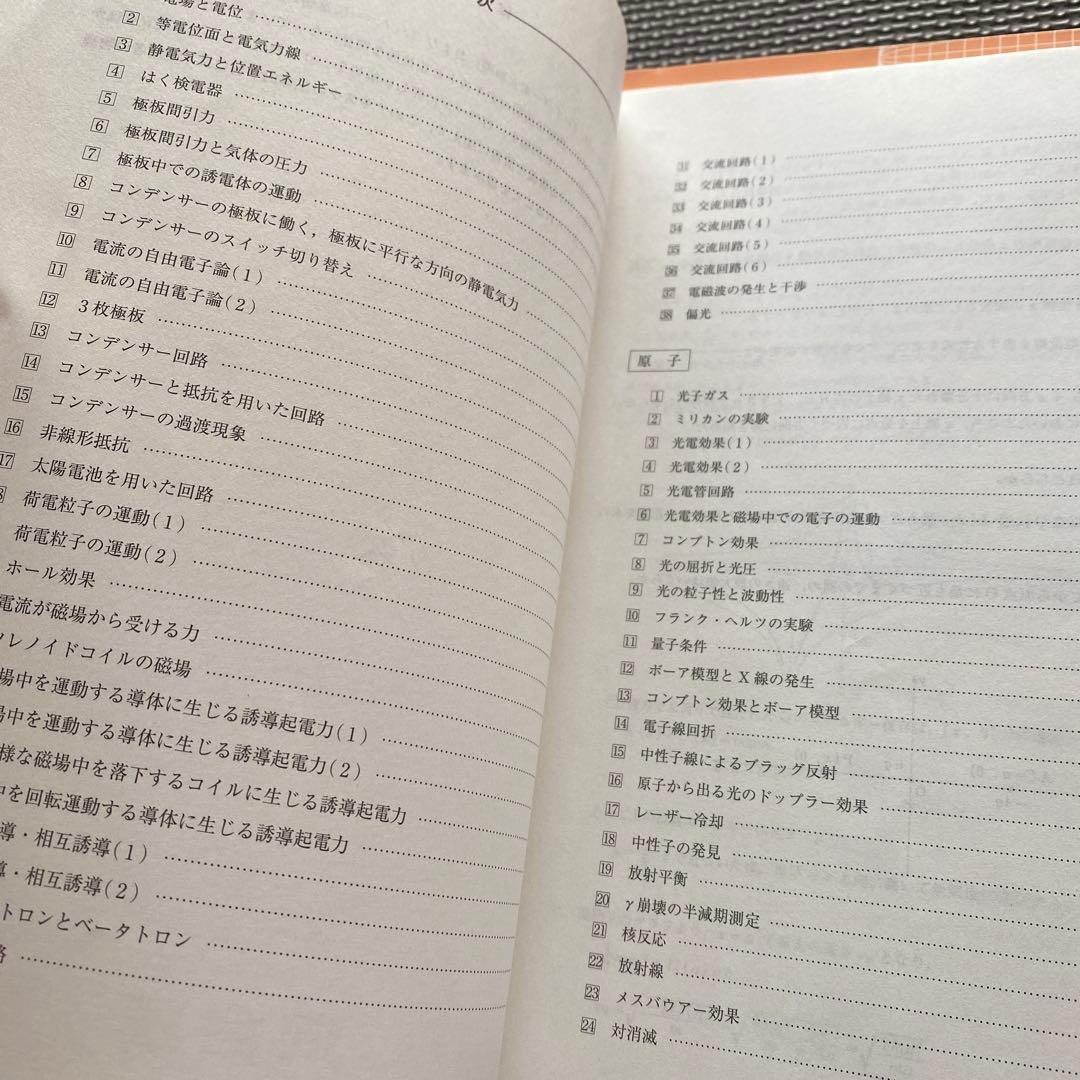 次
電場と電位
2 等電位面と電気力線
3 静電気力と位置エネルギー
4 はく検電器
5 極板間引力
6 極板間引力と気体の圧力
7 極板中での誘電体の運動
8 コンデンサーの極板に働く，極板に平行な方向の静電気力
9 コンデンサーのスイッチ切り替え
10 電流の自由電子論(1)
11 電流の自由電子論(2)
12 3枚極板
13 コンデンサー回路
14 コンデンサーと抵抗を用いた回路
15 コンデンサーの過渡現象
16 非線形抵抗
17 太陽電池を用いた回路
荷電粒子の運動(1)
荷電粒子の運動(2)
ホール効果
電流が磁場から受ける力
レノイドコイルの磁場
場中を運動する導体に生じる誘導起電力(1)
場中を運動する導体に生じる誘導起電力(2)
様な磁場中を落下するコイルに生じる誘導起電力
中を回転運動する導体に生じる誘導起電力
導・相互誘導(1)
導・相互誘導(2)
トロンとベータトロン
路
31 交流回路(1)
32 交流回路(2)
33 交流回路(3)
34 交流回路(4)
35 交流回路(5)
36 交流回路(6)
37 電磁波の発生と干渉
38 偏光
原子
1 光子ガス
2 ミリカンの実験
3 光電効果(1)
4 光電効果(2)
5 光電管回路
6 光電効果と磁場中での電子の運動
7 コンプトン効果
8 光の屈折と光圧
9 光の粒子性と波動性
10 フランク・ヘルツの実験
11 量子条件
12 ボーア模型とX線の発生
13 コンプトン効果とボーア模型
14 電子線回折
15 中性子線によるブラッグ反射
16 原子から出る光のドップラー効果
17 レーザー冷却
18 中性子の発見
19 放射平衡
20 γ崩壊の半減期測定
21 核反応
22 放射線
23 メスバウアー効果
24 対消滅